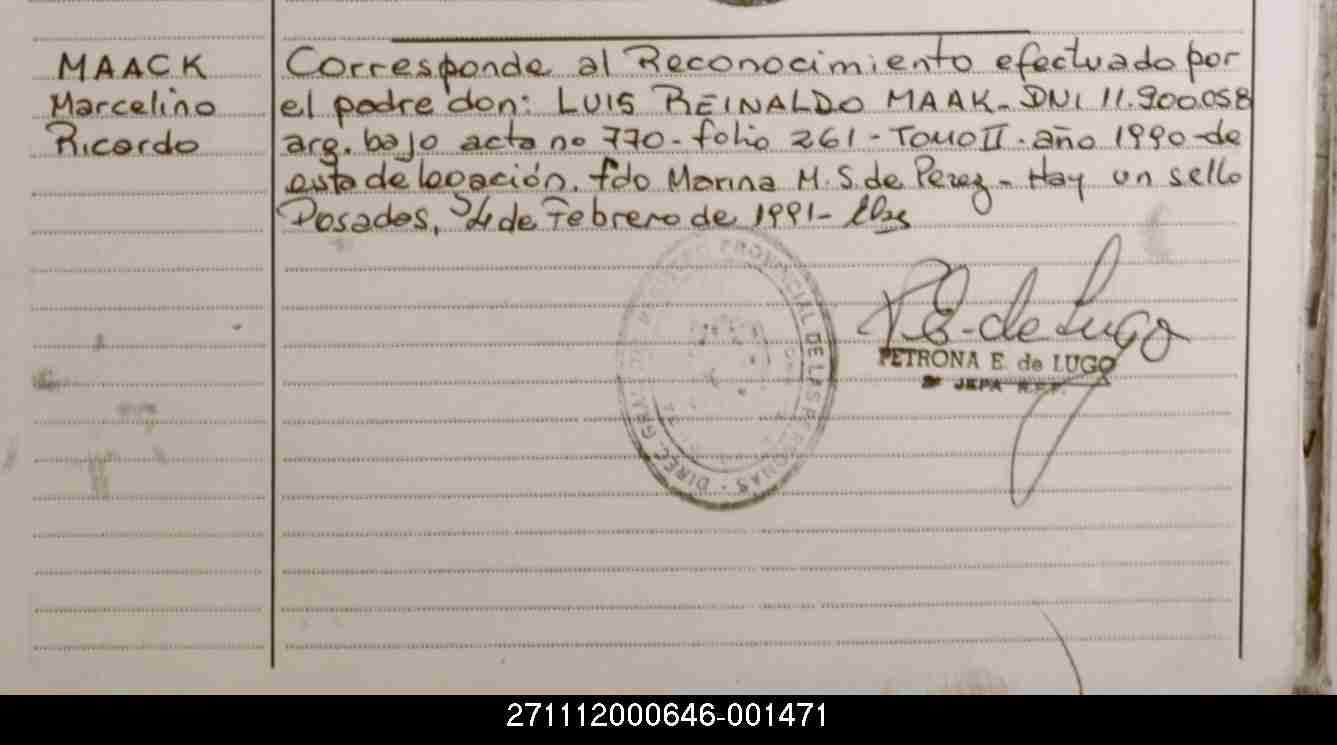 MAACK
Marcelino
Ricardo
Corresponde al Reconocimiento efectuado por
el padre don: LUIS REINALDO MAAK- DNI 11.900.058
arg. bajo acta no 770- folio 261- TOMO II. año 1990-de
esta delegación. fdo Marina M. S. de Perez- Hay un sello
Posadas, de Febrero de 1991-
PROVINCIAL DE LAS PERSONAS - DIREC. GRAL.
P.E. de Lugo
PETRONA E. de LUGO
JEFA
271112000646-001471